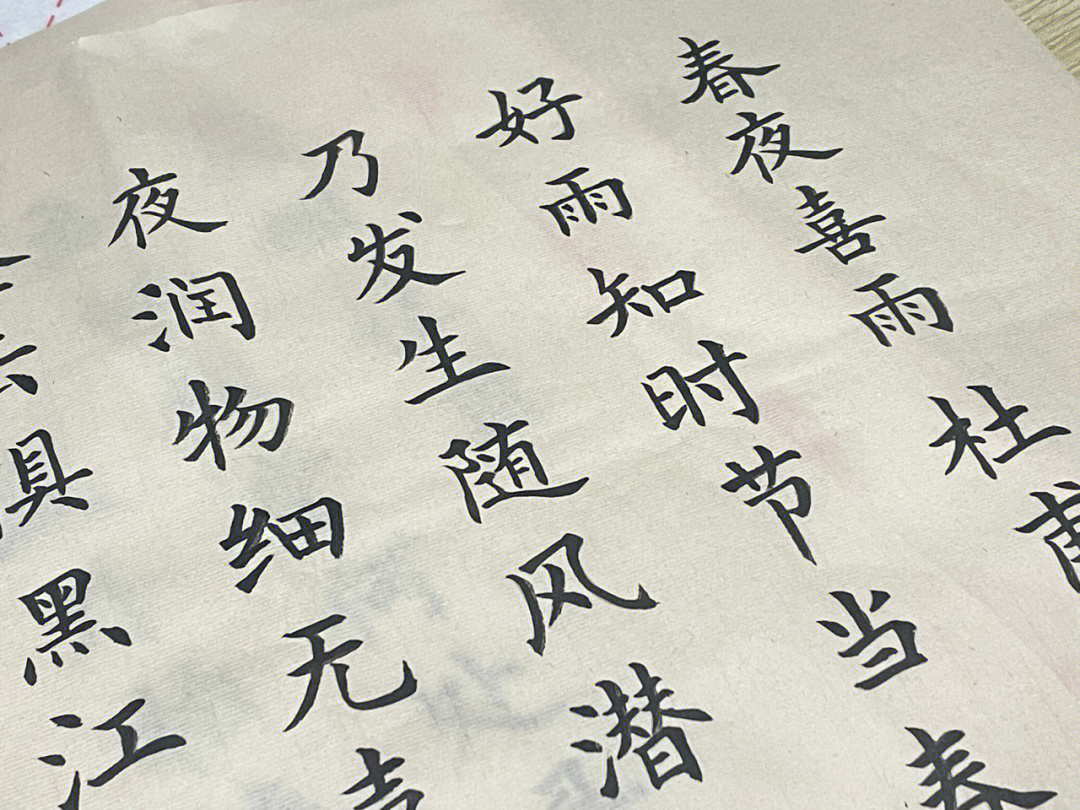 春夜喜雨 杜甫
好雨知时节当春
乃发生随风潜
夜润物细无声
云俱黑江